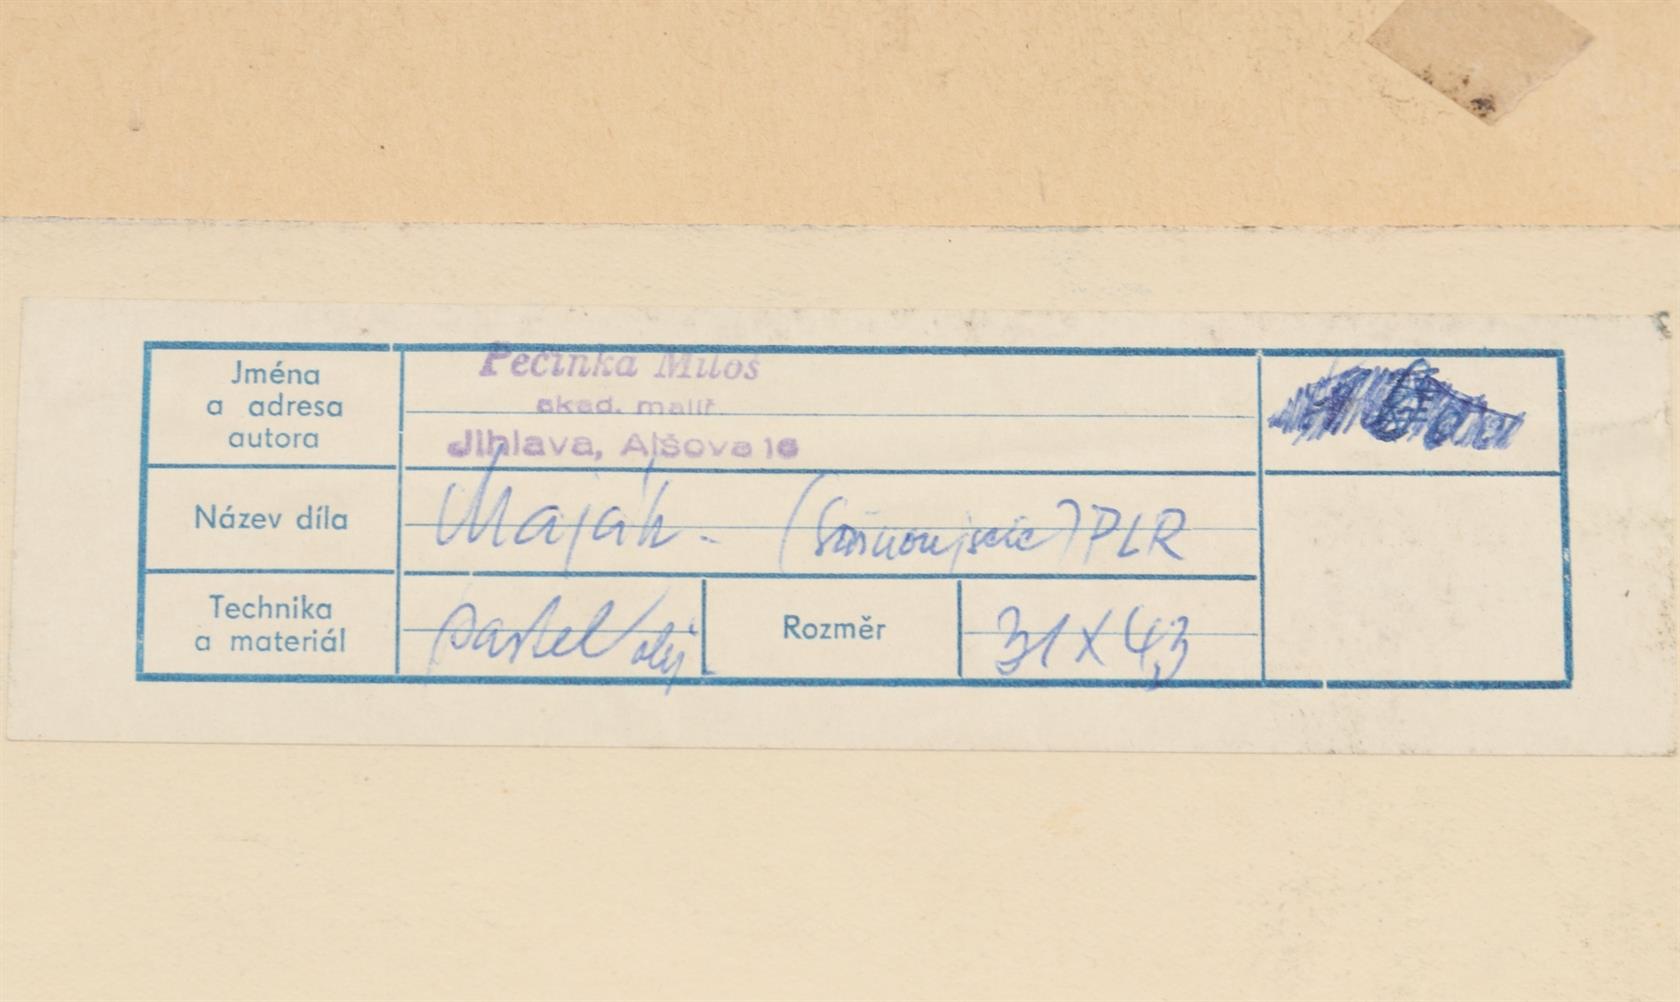 Jména
a adresa
autora
Pečinka Miloš
akad. malíř
Jihlava, Alšova 16
Název díla
Maják. PLR
Technika
a materiál
pastel olej
Rozměr
31 x 43